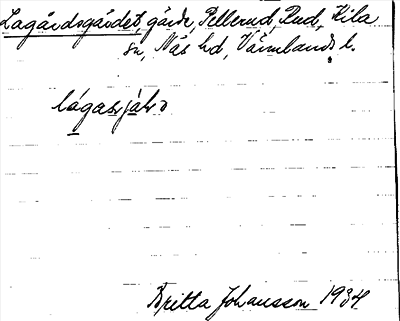 Lagårdsgärdet, gärde, Pellerud, Rud, Kila
sn, Näs hd, Värmlands l.
Britta Johansson 1934